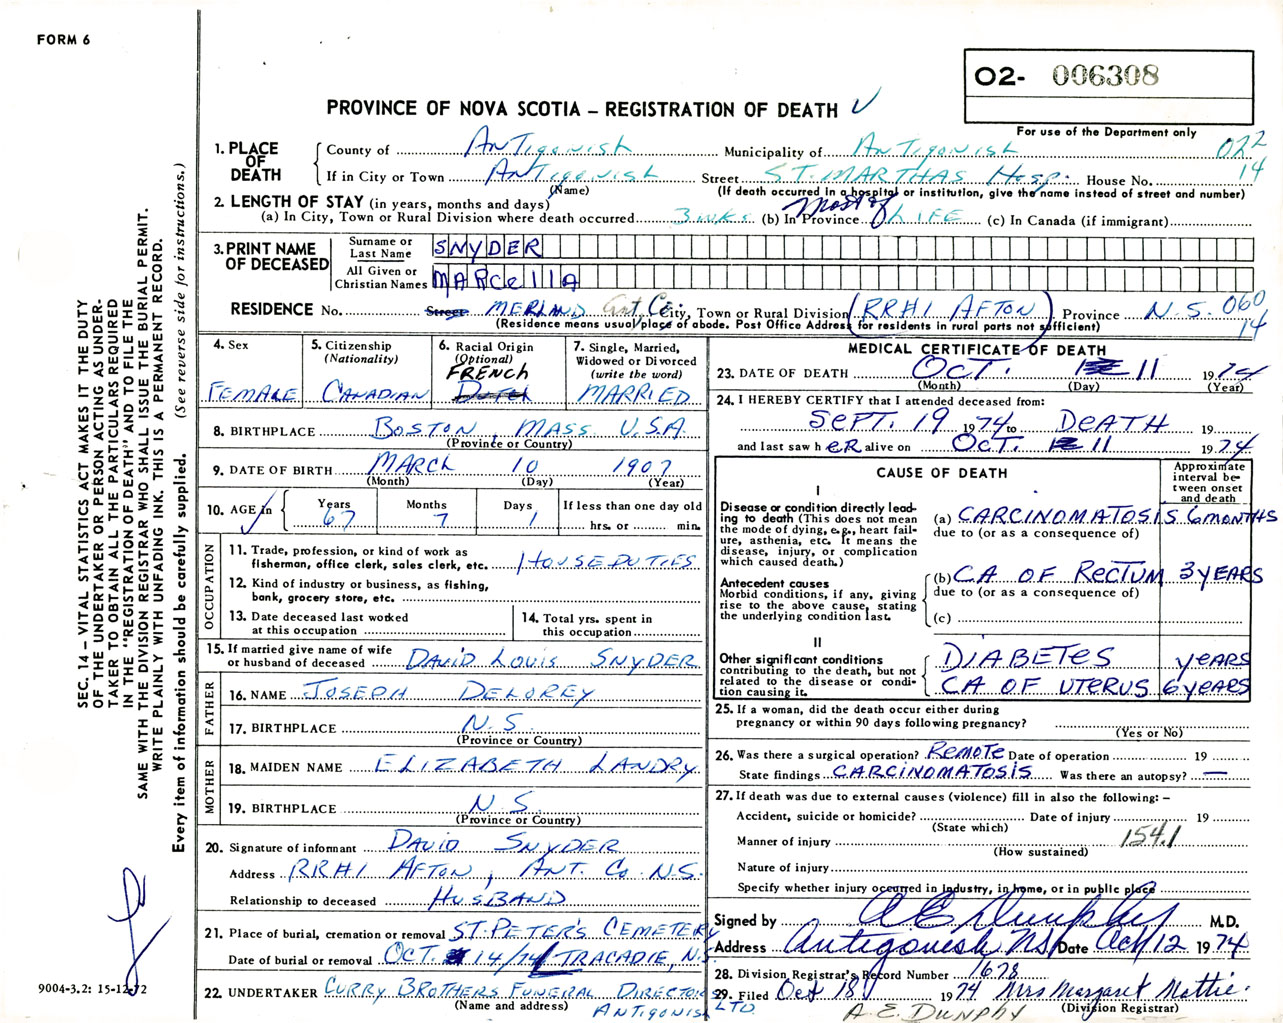 FORM 6
O2- 006308
PROVINCE OF NOVA SCOTIA – REGISTRATION OF DEATH
For use of the Department only
022
14
1. PLACE OF DEATH
County of ANTIGONISH Municipality of ANTIGONISH
If in City or Town ANTIGONISH Street ST. MARTHAS HOSP. House No.
(Name) (If death occurred in a hospital or institution, give the name instead of street and number)
2. LENGTH OF STAY (in years, months and days)
(a) In City, Town or Rural Division where death occurred 3 WKS (b) In Province Most of LIFE (c) In Canada (if immigrant)
3. PRINT NAME OF DECEASED
Surname or Last Name SNYDER
All Given or Christian Names MARCEllA
RESIDENCE No. Street MERLAND Ant. Co. City, Town or Rural Division (RR#1 AFTON) Province N.S. 060
14
(Residence means usual place of abode. Post Office Address for residents in rural parts not sufficient)
4. Sex FEMALE
5. Citizenship (Nationality) CANADIAN
6. Racial Origin (Optional) FRENCH
7. Single, Married, Widowed or Divorced (write the word) MARRIED
8. BIRTHPLACE BOSTON, MASS U.S.A.
(Province or Country)
9. DATE OF BIRTH MARCH 10 1907
(Month) (Day) (Year)
10. AGE in Years 67 Months 7 Days 1 If less than one day old hrs. or min.
OCCUPATION
11. Trade, profession, or kind of work as fisherman, office clerk, sales clerk, etc. HOUSEDUTIES
12. Kind of industry or business, as fishing, bank, grocery store, etc.
13. Date deceased last worked at this occupation
14. Total yrs. spent in this occupation
15. If married give name of wife or husband of deceased DAVID LOUIS SNYDER
FATHER
16. NAME JOSEPH DELOREY
17. BIRTHPLACE N.S.
(Province or Country)
MOTHER
18. MAIDEN NAME ELIZABETH LANDRY
19. BIRTHPLACE N.S.
(Province or Country)
20. Signature of informant DAVID SNYDER
Address RR#1 AFTON, ANT. Co. N.S.
Relationship to deceased HUSBAND
21. Place of burial, cremation or removal ST. PETER'S CEMETERY
Date of burial or removal OCT. 14/74 TRACADIE, N.S.
22. UNDERTAKER CURRY BROTHERS FUNERAL DIRECTORS LTD.
(Name and address) ANTIGONISH
MEDICAL CERTIFICATE OF DEATH
23. DATE OF DEATH OCT. 11 1974
(Month) (Day) (Year)
24. I HEREBY CERTIFY that I attended deceased from:
SEPT. 19 1974 to DEATH 19
and last saw hER alive on OCT. 11 1974
CAUSE OF DEATH
Approximate interval between onset and death
I
Disease or condition directly leading to death (This does not mean the mode of dying, e.g., heart failure, asthenia, etc. It means the disease, injury, or complication which caused death.)
(a) CARCINOMATOSIS 6 MONTHS
due to (or as a consequence of)
Antecedent causes
Morbid conditions, if any, giving rise to the above cause, stating the underlying condition last.
(b) CA OF RECTUM 3 YEARS
due to (or as a consequence of)
(c)
II
Other significant conditions contributing to the death, but not related to the disease or condition causing it.
DIABETES YEARS
CA OF UTERUS 6 YEARS
25. If a woman, did the death occur either during pregnancy or within 90 days following pregnancy?
(Yes or No)
26. Was there a surgical operation? REMOTE Date of operation 19
State findings CARCINOMATOSIS Was there an autopsy? —
27. If death was due to external causes (violence) fill in also the following: –
Accident, suicide or homicide? Date of injury 19
(State which)
Manner of injury 154.1
(How sustained)
Nature of injury
Specify whether injury occurred in industry, in home, or in public place
Signed by A E Dunphy M.D.
Address Antigonish NS Date Oct 12 1974
28. Division Registrar's Record Number 1678
29. Filed Oct 18 1974 Mrs Margaret Mattie
(Division Registrar)
A. E. DUNPHY
SEC. 14 – VITAL STATISTICS ACT MAKES IT THE DUTY
OF THE UNDERTAKER OR PERSON ACTING AS UNDER-
TAKER TO OBTAIN ALL THE PARTICULARS REQUIRED
IN THE "REGISTRATION OF DEATH" AND TO FILE THE
SAME WITH THE DIVISION REGISTRAR WHO SHALL ISSUE THE BURIAL PERMIT.
WRITE PLAINLY WITH UNFADING INK. THIS IS A PERMANENT RECORD.
Every item of information should be carefully supplied. (See reverse side for instructions.)
9004-3.2: 15-12-72